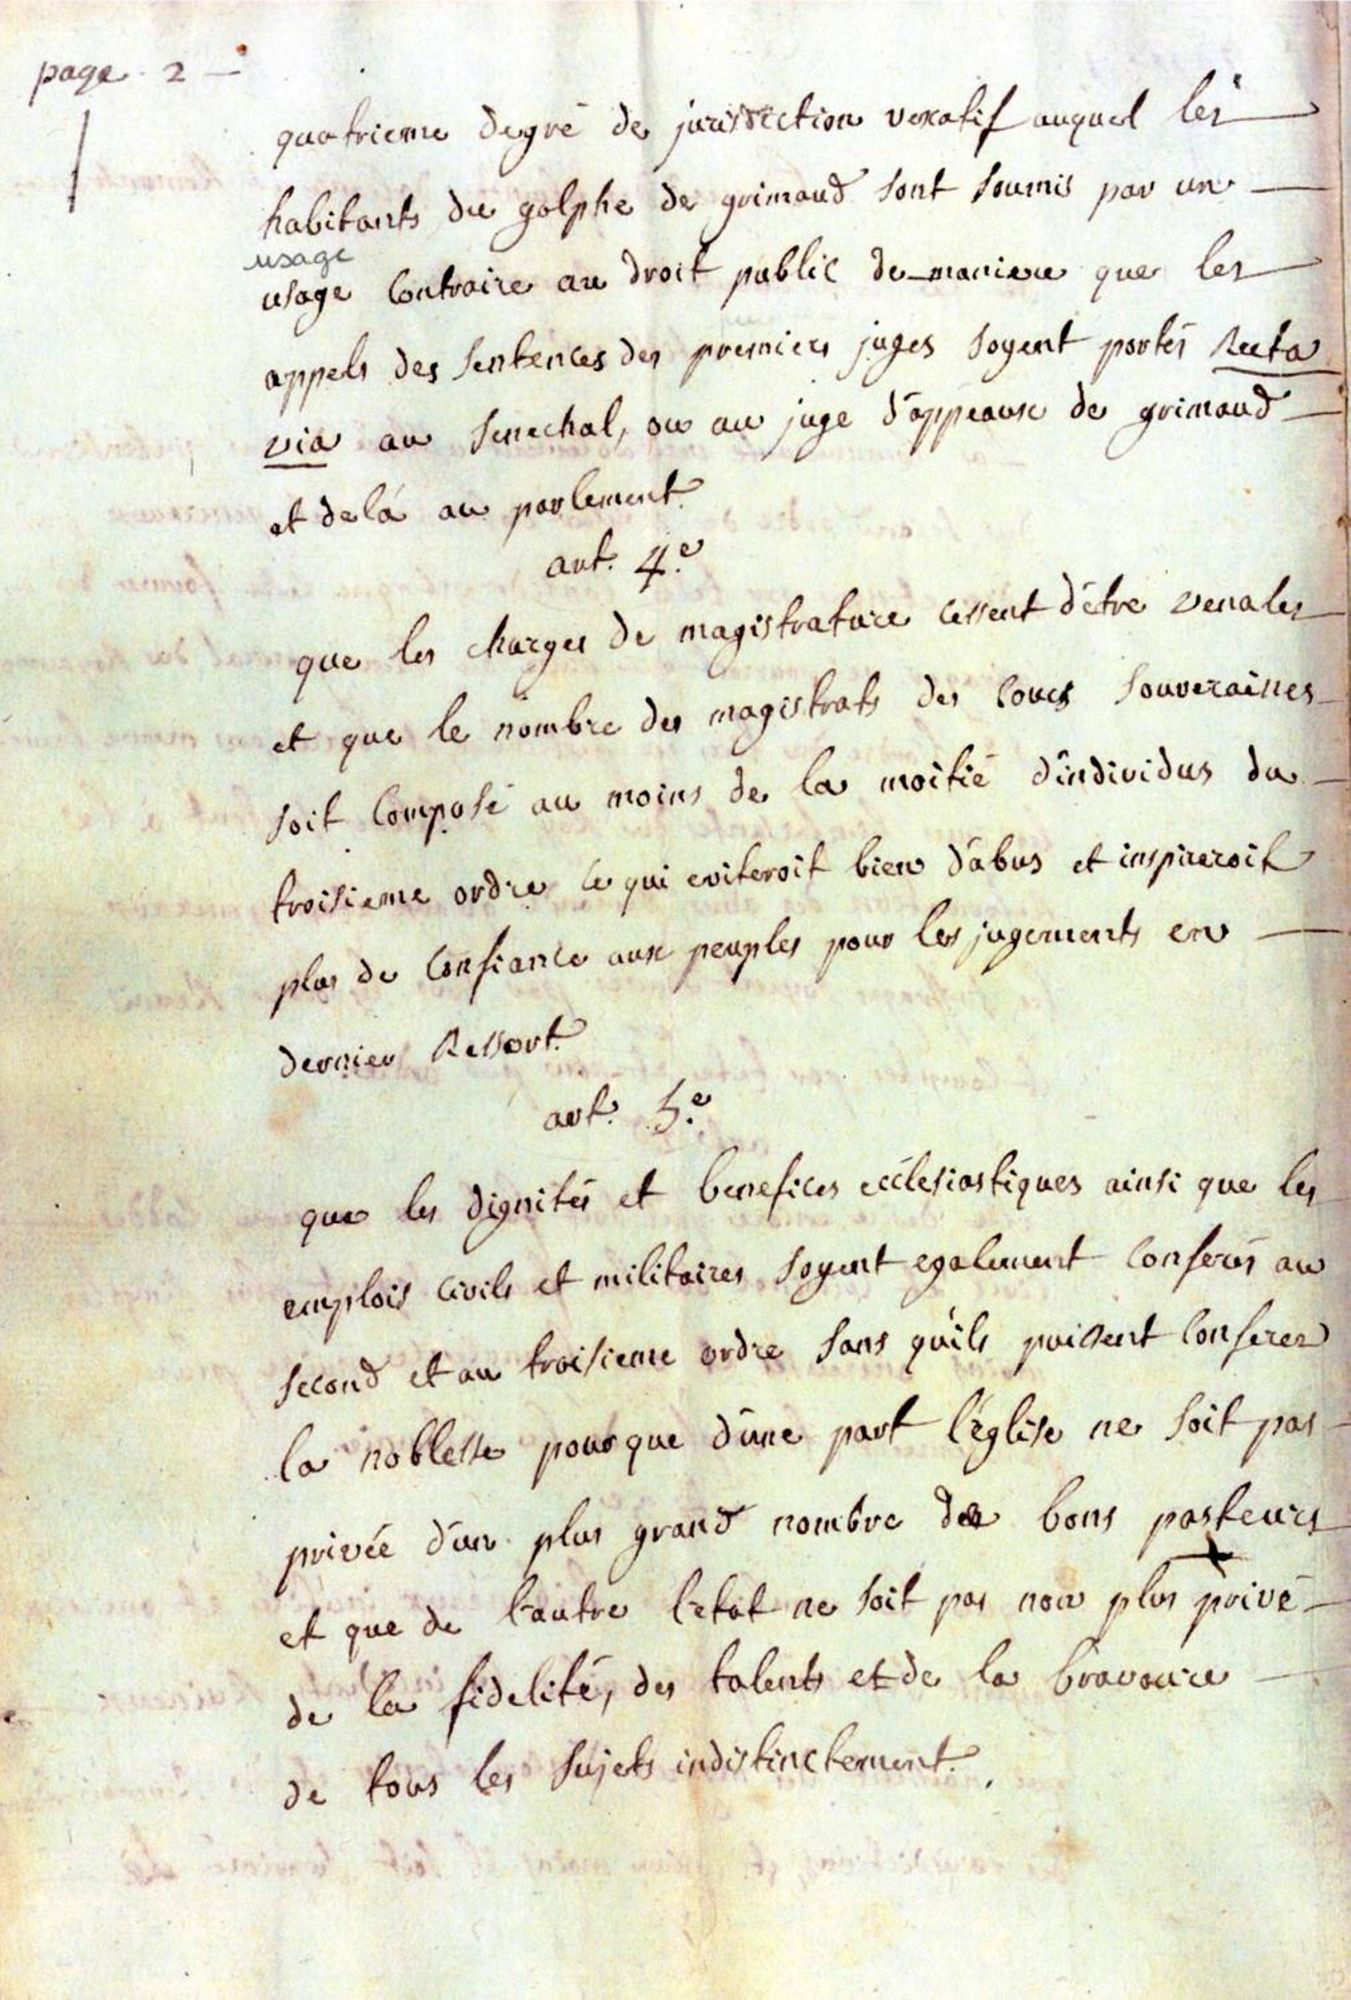 page. 2 —
quatrieme degré de jurisdiction vexatif auquel les
habitants du golphe de grimaud sont soumis par un
usage
usage contraire au droit public de maniere que les
appels des sentences des premiers juges soyent portés Recta
via au senechal, ou au juge d'appeaux de grimaud
et delá au parlement.
art. 4.e
que les charges de magistrature cessent d'étre venales
et que le nombre des magistrats des cours souveraines
soit composé au moins de la moitié d'individus du
troisieme ordre ce qui eviteroit bien d'abus et inspireroit
plus de confiance aux peuples pour les jugements en
dernier Ressort.
art. 5.e
que les dignités et benefices ecclesiastiques ainsi que les
emplois civils et militaires soyent egalement conferés au
second et au troisieme ordre sans qu'ils puissent conferer
la noblesse pourque d'une part l'église ne soit pas
privée d'un plus grand nombre des bons pasteurs
et que de l'autre l'etat ne soit pas non plus privé
de la fidelité, des talents et de la bravoure
de tous les sujets indistinctement.